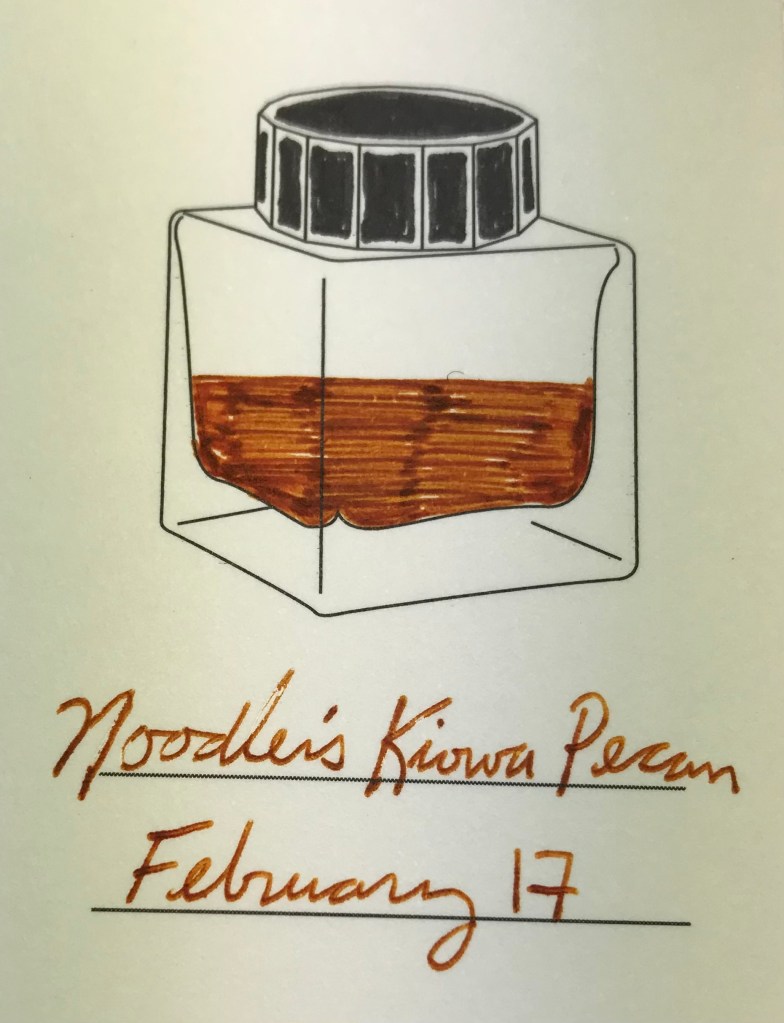 Noodler's Kiowa Pecan
February 17